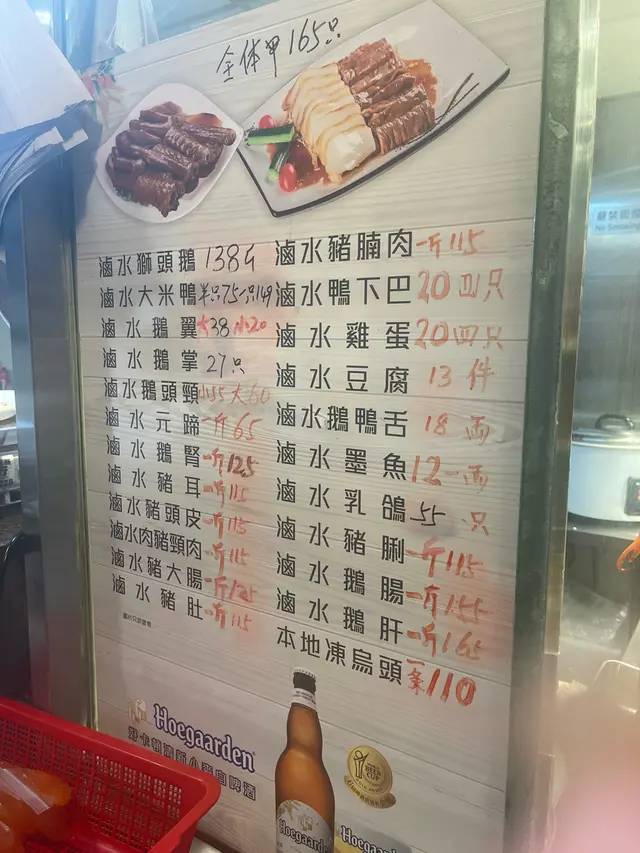 全体甲165只
滷水獅頭鵝 138斤
滷水大米鴨 半只75一只149
滷水鵝翼 大38 小20
滷水鵝掌 27只
滷水鵝頭頸 小55 大60
滷水元蹄 一斤65
滷水鵝腎 一斤125
滷水豬耳 一斤115
滷水豬頭皮 一斤115
滷水肉豬頸肉 一斤115
滷水豬大腸 一斤125
滷水豬肚 一斤115
圖片只供參考
滷水豬腩肉 一斤115
滷水鴨下巴 20四只
滷水雞蛋 20四只
滷水豆腐 13件
滷水鵝鴨舌 18両
滷水墨魚 12一両
滷水乳鴿 55只
滷水豬脷 一斤115
滷水鵝腸 一斤155
滷水鵝肝 一斤165
本地凍烏頭 一条110
Hoegaarden
Hoegaarden
Hoegaarden
No Smoking